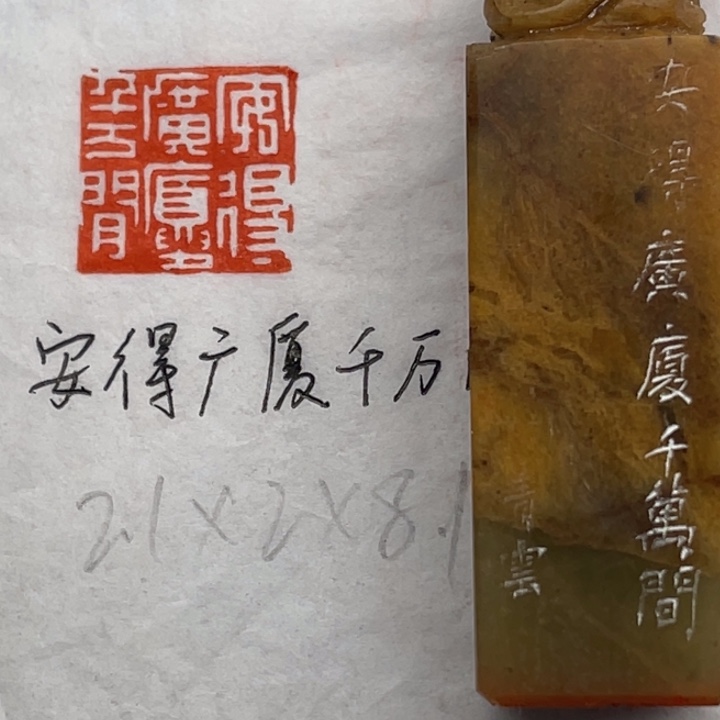 安得
廣廈
千万閒
安得广廈千万
2.1×2×8.1
安得廣廈千萬間
青雲